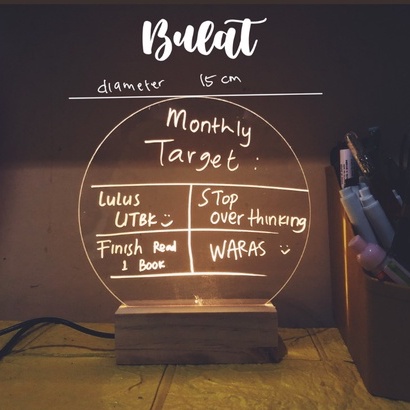 Bulat
diameter 15 cm
Monthly
Target :
Lulus
UTBK
STOP
overthinking
Finish Read
1 Book
WARAS